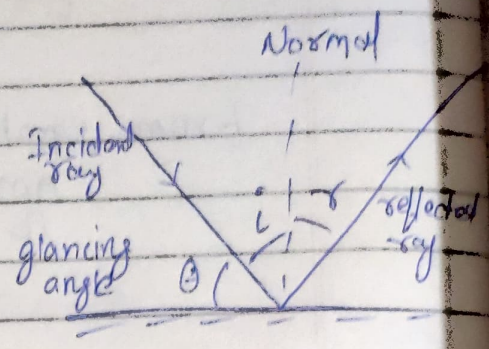 Normal
Incident
ray
i
r
reflected
ray
glancing
angle
θ